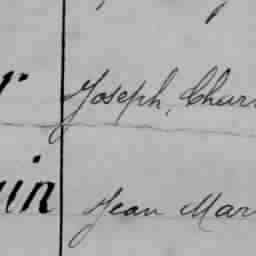 r Joseph, Char
in Jean Mar